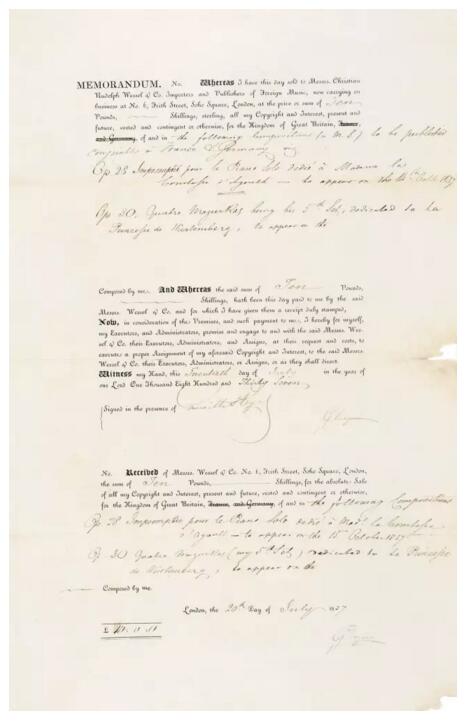 MEMORANDUM. No. Whereas I have this day sold to Messrs. Christian
Rudolph Wessel & Co. Importers and Publishers of Foreign Music, now carrying on
business at No. 6, Frith Street, Soho Square, London, at the price or sum of Ten
Pounds, Shillings, sterling, all my Copyright and Interest, present and
future, vested and contingent or otherwise, for the Kingdom of Great Britain, France,
and Germany, of and in the following Compositions (in M.S.) to be published
in France & Germany
Op 28 Impromptu pour le Piano Solo dédié à Madame la
Comtesse d'Agoult — to appear on the 15th Octobr 1837
Op 30. Quatre Mazurkas being his 5th Set, dedicated to La
Princesse de Wurtemberg, to appear on the
Composed by me. And Whereas the said sum of Ten Pounds,
Shillings, hath been this day paid to me by the said
Messrs. Wessel & Co. and for which I have given them a receipt duly stamped,
Now, in consideration of the Premises, and such payment to me, I hereby for myself,
my Executors, and Administrators, promise and engage to and with the said Messrs. Wes-
sel & Co. their Executors, Administrators, and Assigns, at their request and costs, to
execute a proper Assignment of my aforesaid Copyright and Interest, to the said Messrs.
Wessel & Co. their Executors, Administrators, or Assigns, or as they shall direct.
Witness my Hand, this Twentieth day of July in the year of
our Lord One Thousand Eight Hundred and Thirty Seven
Signed in the presence of
No. Received of Messrs. Wessel & Co. No. 6, Frith Street, Soho Square, London,
the sum of Ten Pounds, Shillings, for the absolute Sale
of all my Copyright and Interest, present and future, vested and contingent or otherwise,
for the Kingdom of Great Britain, France, and Germany, of and in the following Compositions
Op 28 Impromptu pour le Piano Solo dédié à Madc la Comtesse
d'Agoult — to appear on the 15 October 1837
Op 30 Quatre Mazurkas (my 5th Set) dedicated to la Princesse
de Wurtemberg, to appear on the
Composed by me.
London, the 20th Day of July 1837
£ 10